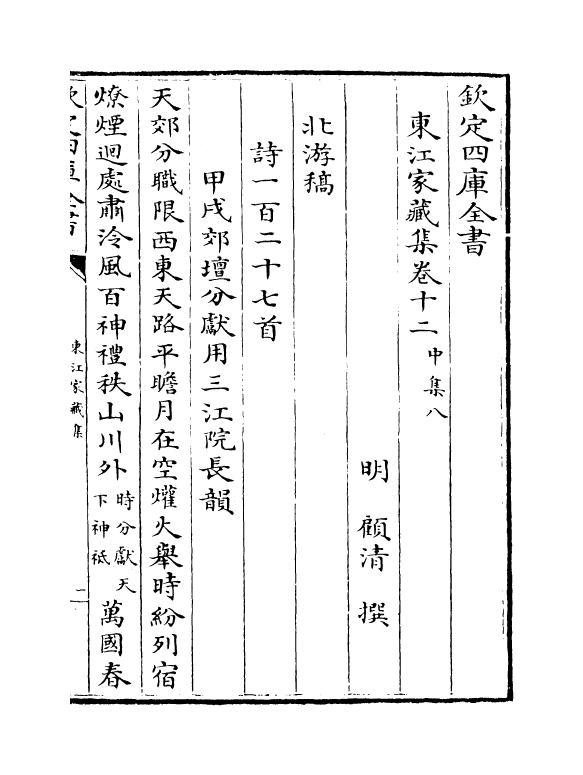 欽定四庫全書
東江家藏集卷十二 中集八
明 顧清 撰
北游稿
詩一百二十七首
甲戌郊壇分獻用三江院長韻
天郊分職限西東天路平瞻月在空爟火舉時紛列宿
燎煙迴處肅泠風百神禮秩山川外時分獻天下神祗萬國春
欽定四庫全書
東江家藏集
一